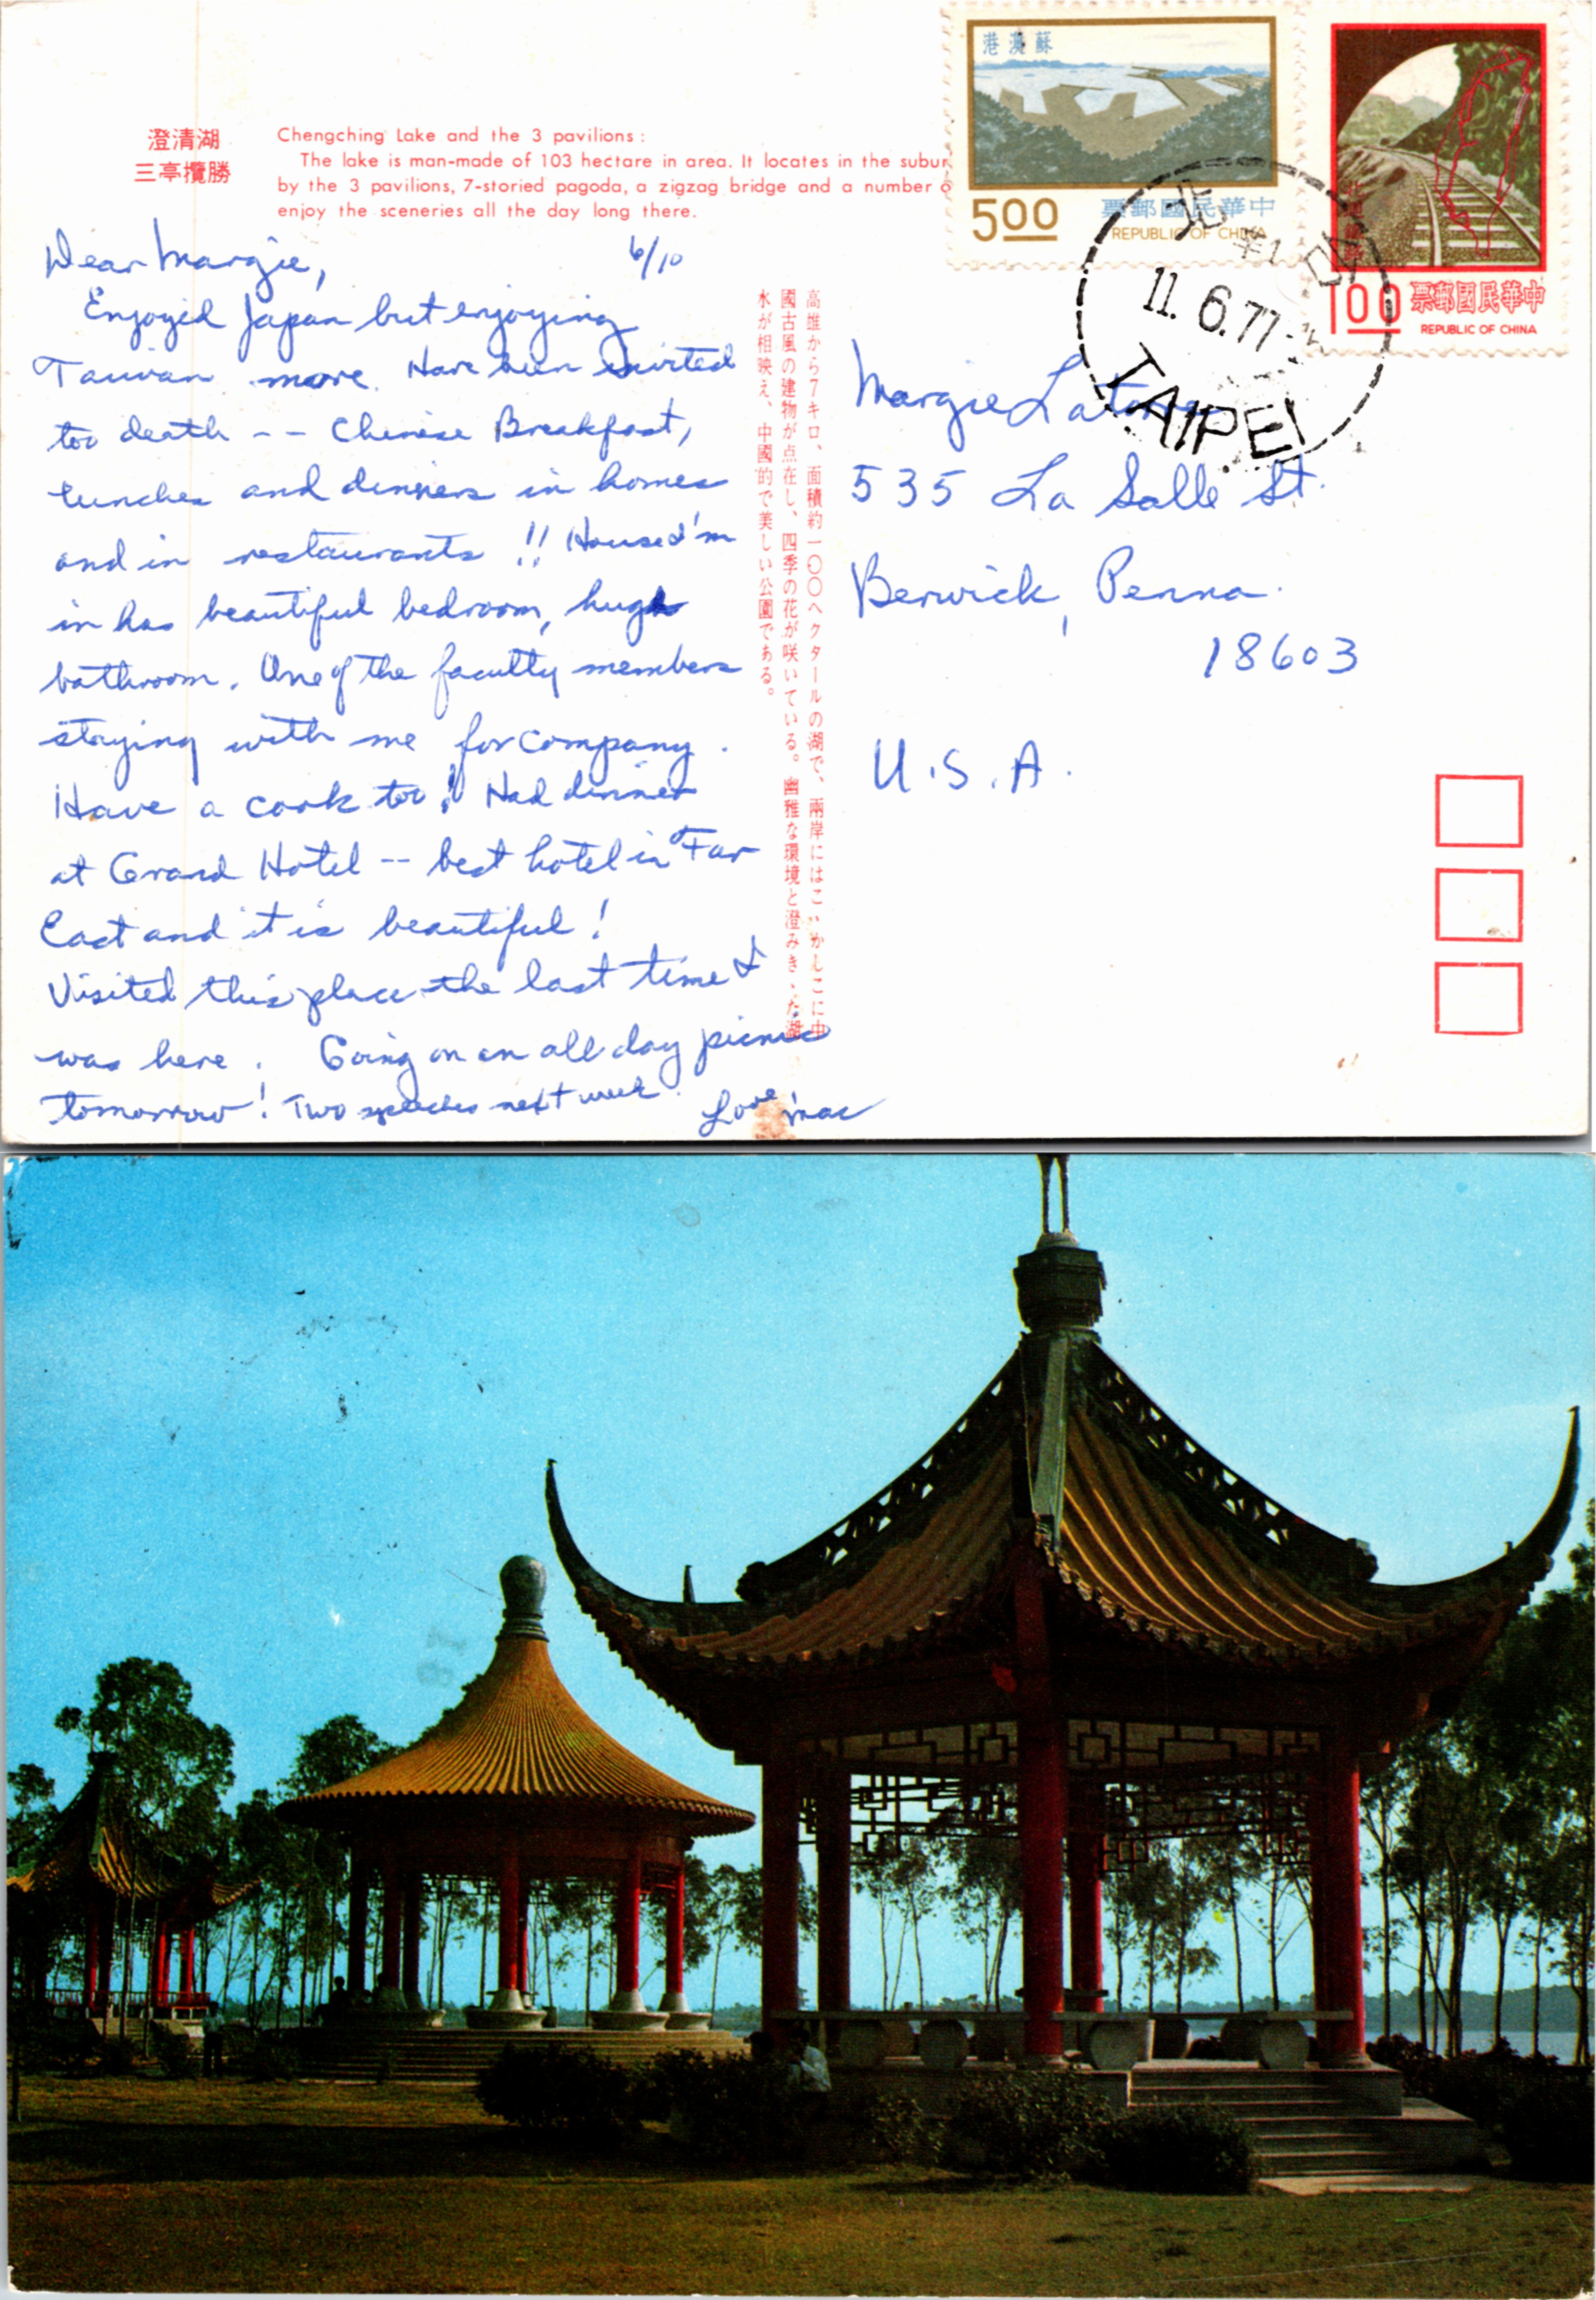 澄清湖
三亭攬勝
Chengching Lake and the 3 pavilions :
The lake is man-made of 103 hectare in area. It locates in the subur
by the 3 pavilions, 7-storied pagoda, a zigzag bridge and a number o
enjoy the sceneries all the day long there.
港澳蘇
500
票郵國民華中
REPUBLIC OF CHINA
100
票郵國民華中
REPUBLIC OF CHINA
11.6.77
TAIPEI
6/10
Dear Margie,
Enjoyed Japan but enjoying
Taiwan more. Have been invited
too death -- Chinese Breakfast,
lunches and dinners in homes
and in restaurants !! House I'm
in has beautiful bedroom, huge
bathroom. One of the faculty members
staying with me for company.
Have a cook too! Had dinner
at Grand Hotel -- best hotel in Far
East and it is beautiful!
Visited this place the last time I
was here. Going on an all day picnic
tomorrow! Two speeches next week.
Love Mac
高雄から7キロ、面積約一〇〇ヘクタールの湖で、兩岸にはこゝかしこに中
國古風の建物が点在し、四季の花が咲いている。幽雅な環境と澄みきった湖
水が相映え、中國的で美しい公園である。
Margie LaTorre
535 La Salle St.
Berwick, Penna.
18603
U.S.A.